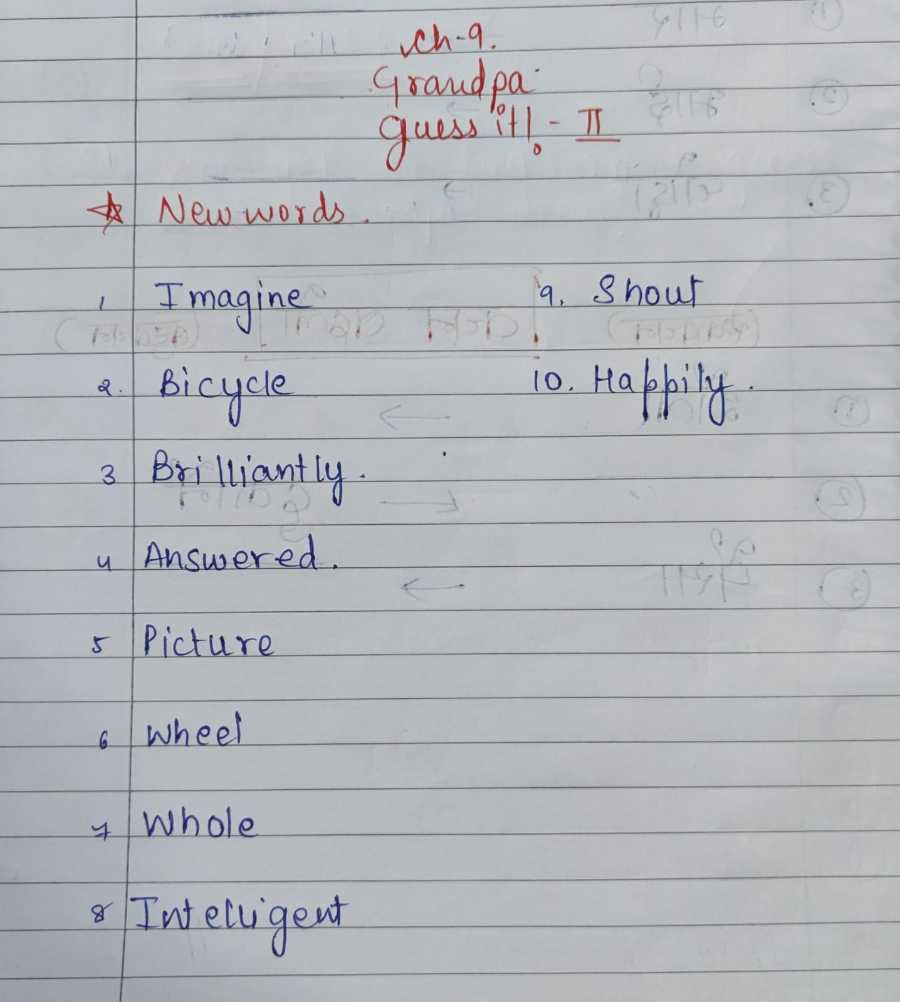 Ch-9.
Grandpa
guess it! - II
☆ New words.
1 Imagine
2. Bicycle
3 Brilliantly.
4 Answered.
5 Picture
6 Wheel
7 Whole
8 Intelligent
9. Shout
10. Happily.